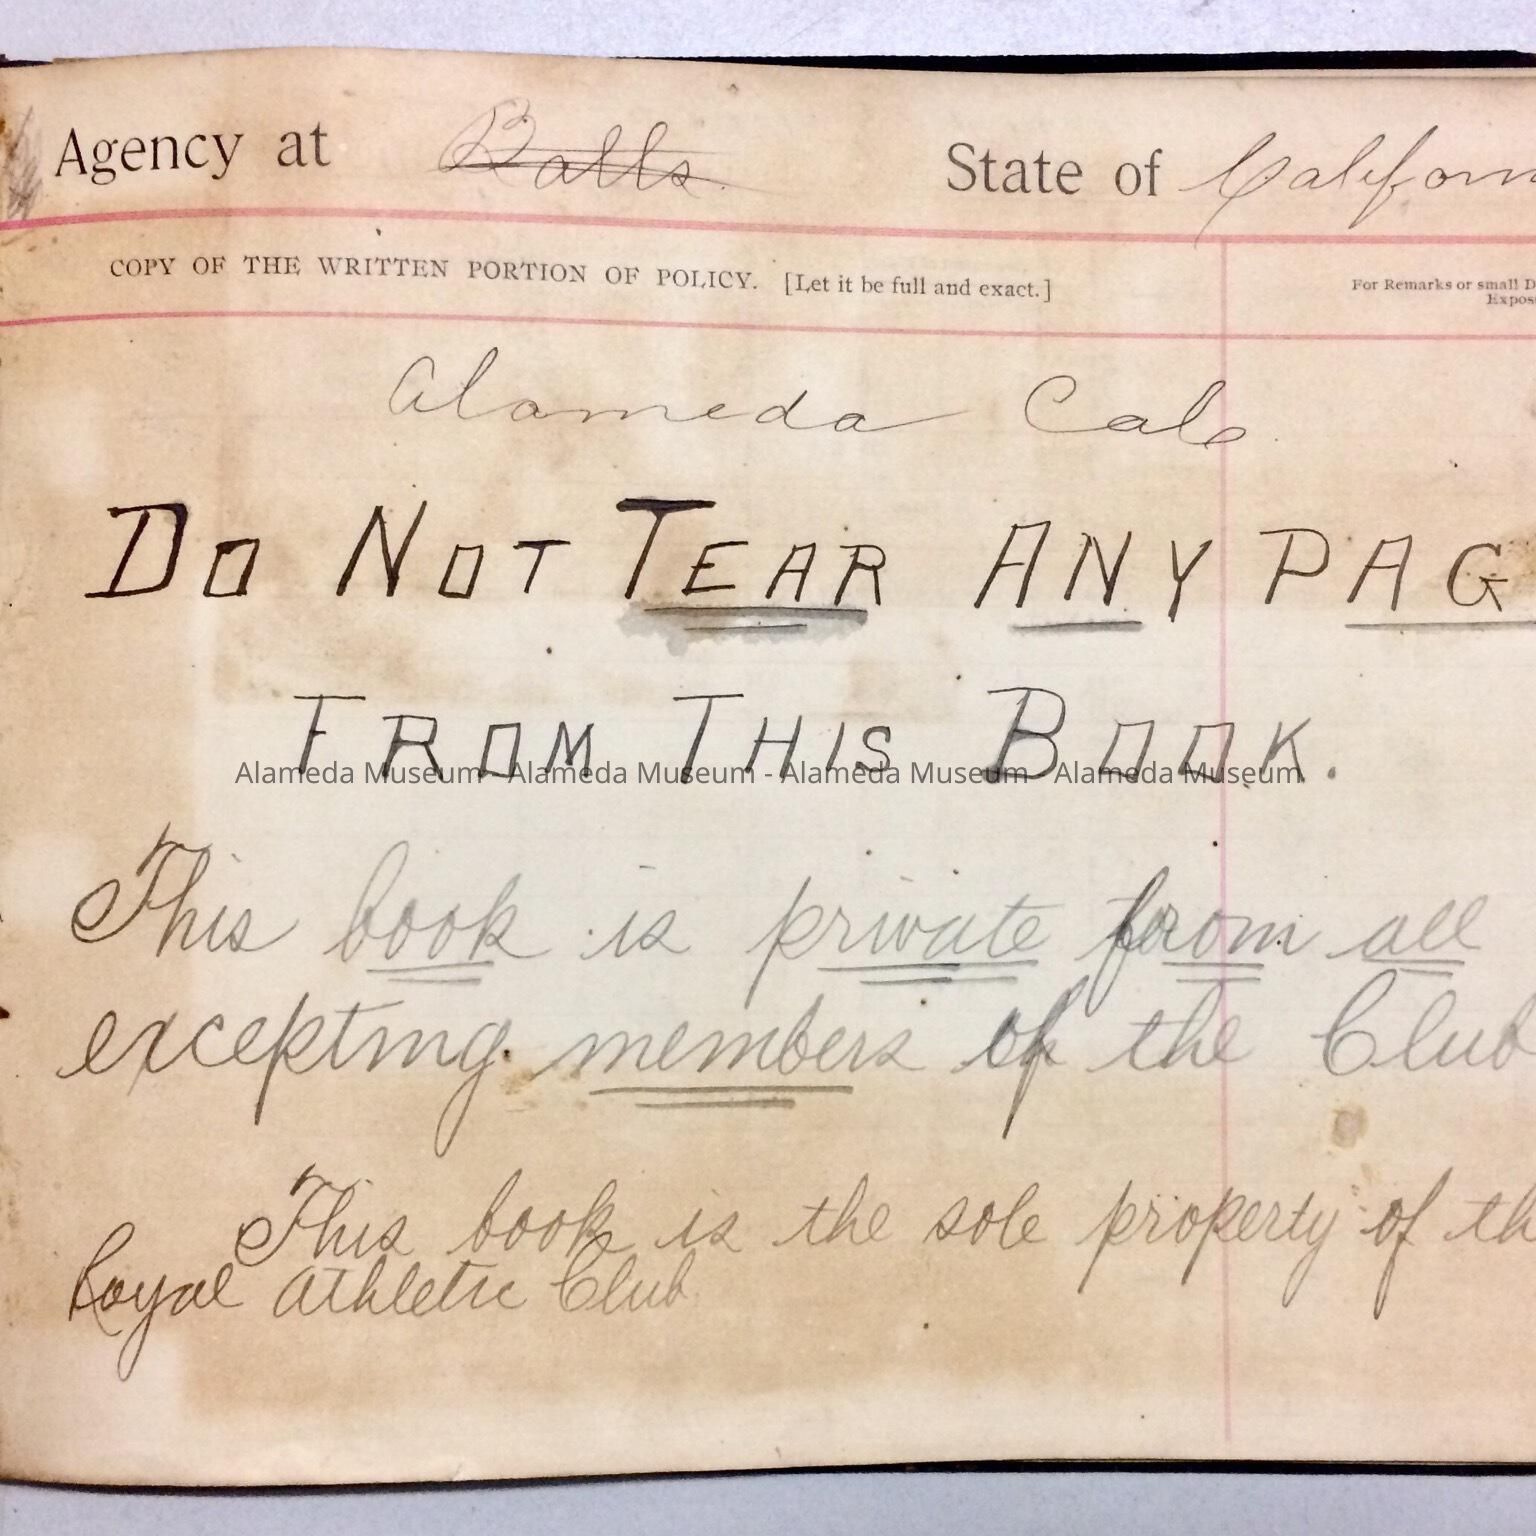 Agency at Balls. State of Californ
COPY OF THE WRITTEN PORTION OF POLICY. [Let it be full and exact.] For Remarks or small D
Expos
Alameda Cala
DO NOT TEAR ANY PAG
FROM THIS BOOK.
Alameda Museum - Alameda Museum - Alameda Museum - Alameda Museum
This book is private from all
excepting members of the Club
This book is the sole property of th
Royal Athletic Club